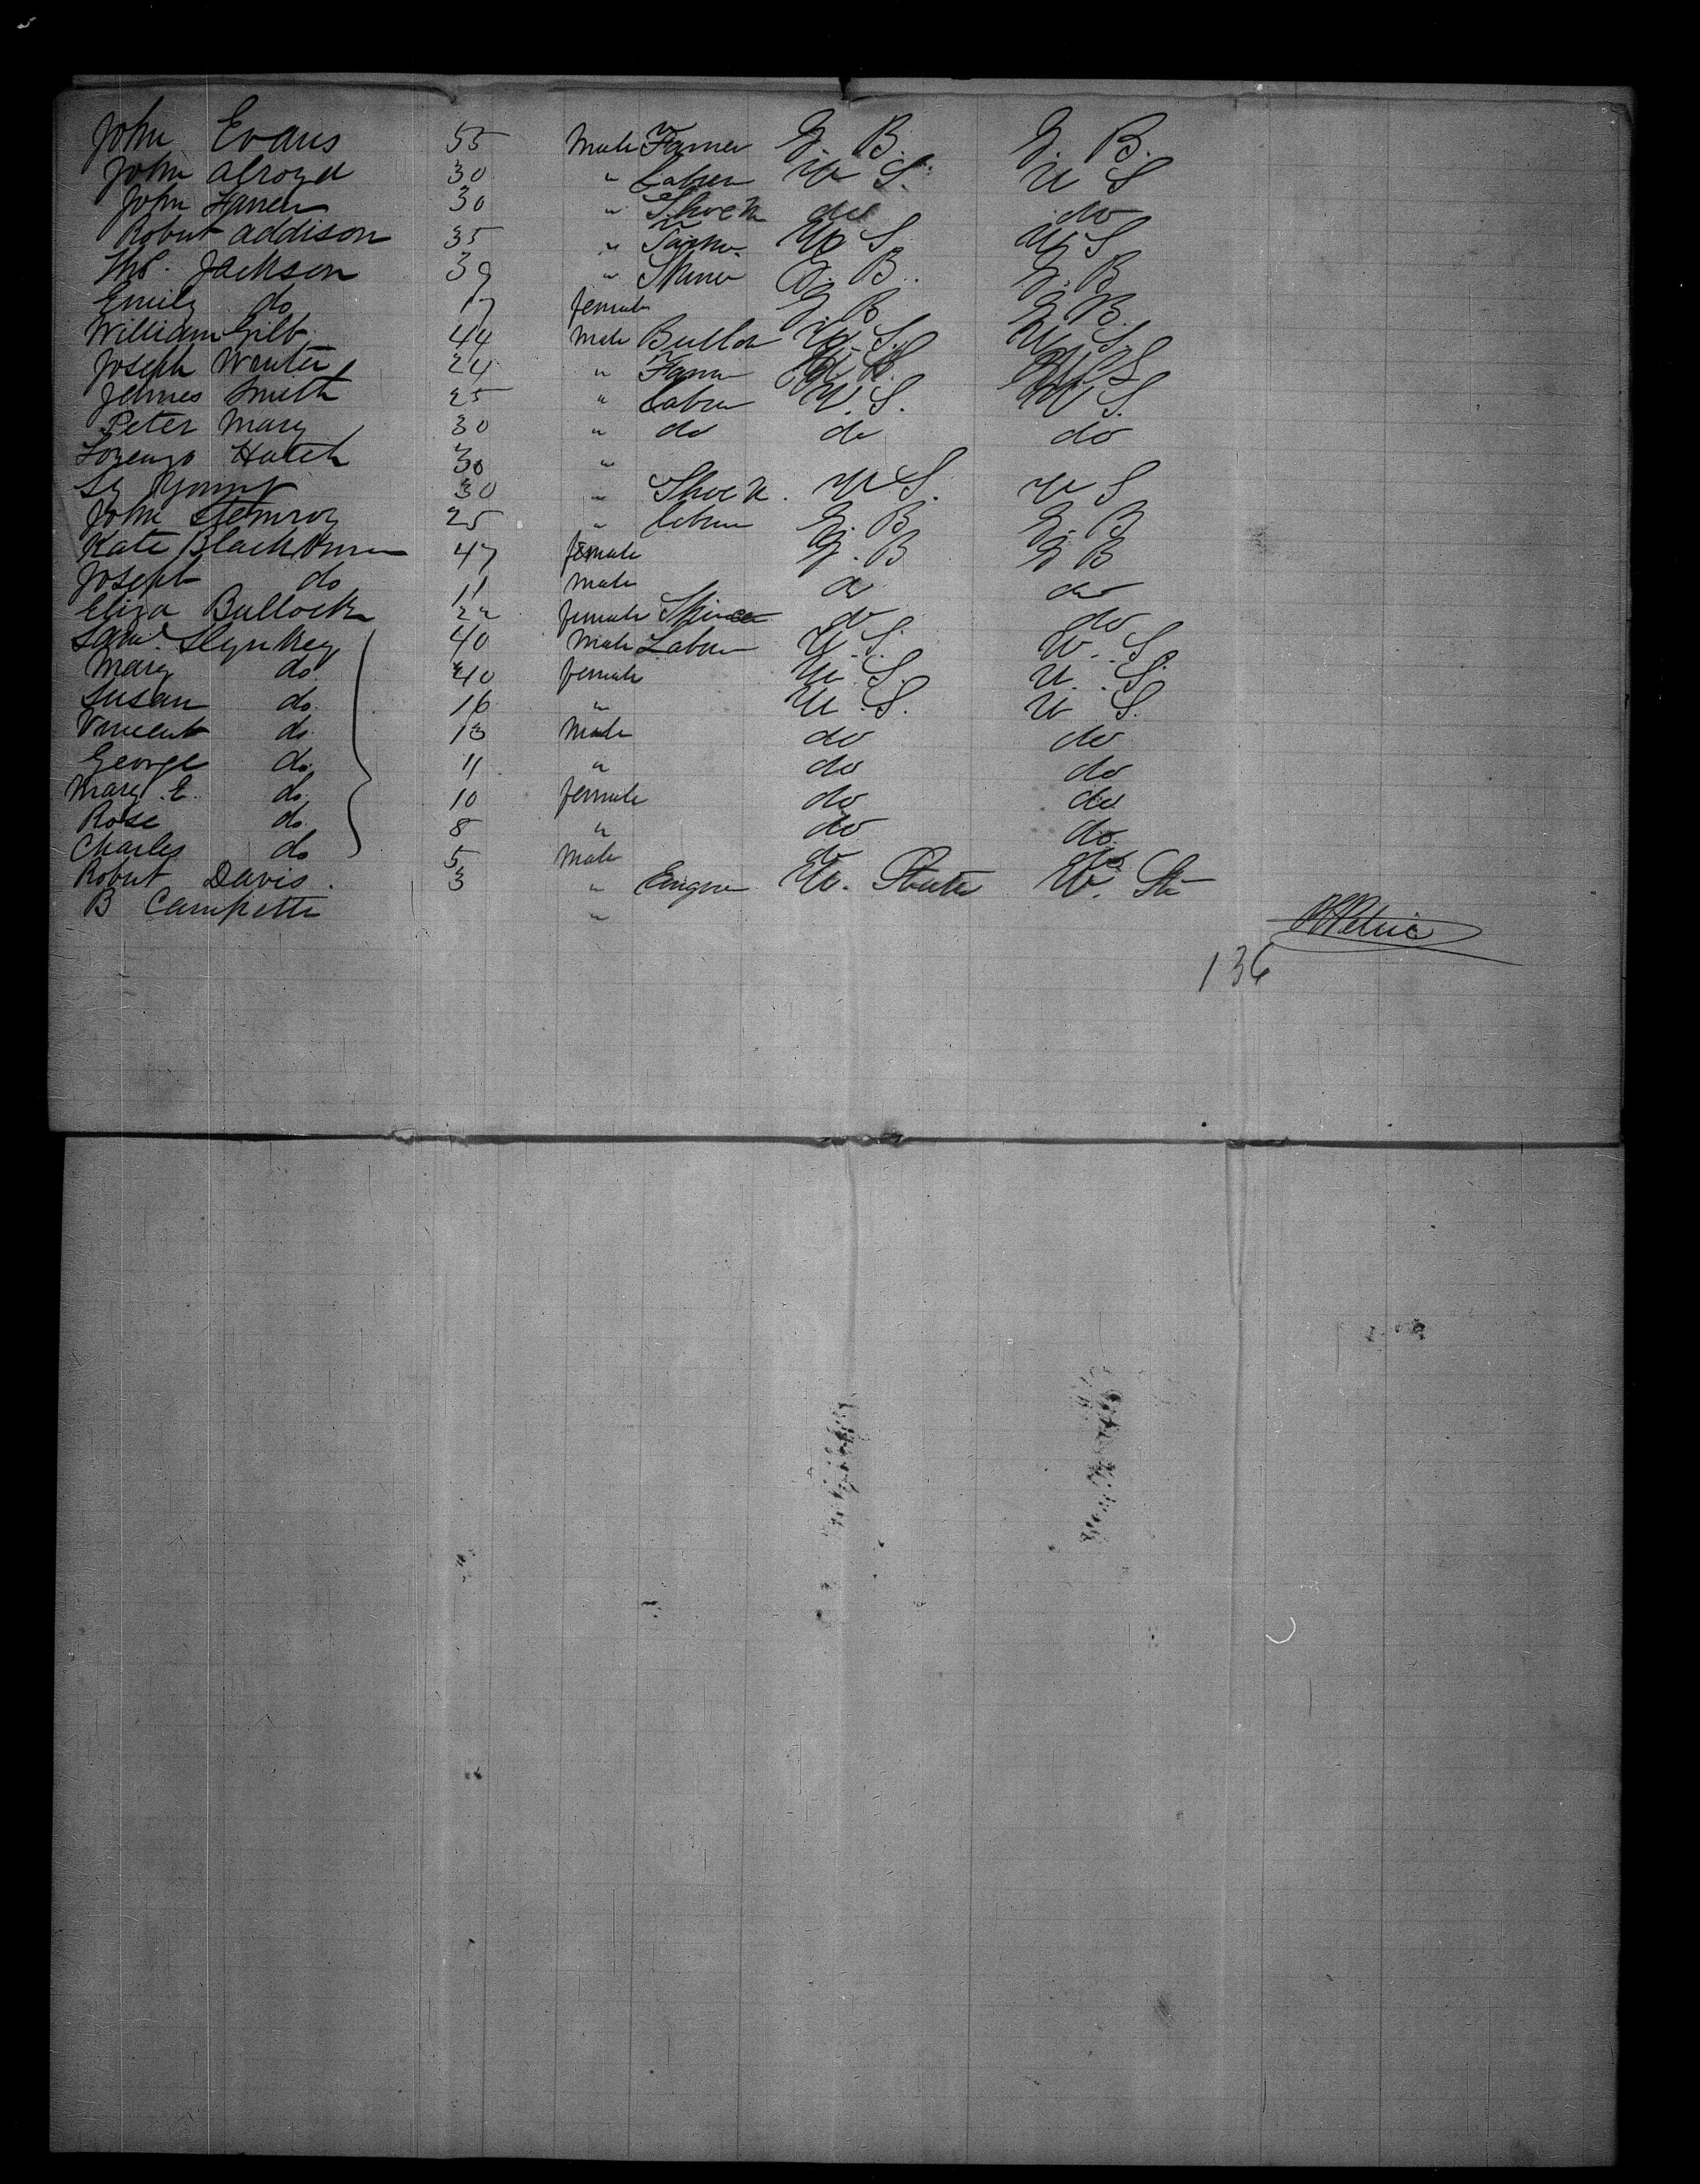 John Evans 55 Male Farmer G. B. G. B.
John Alroyd 30 " Labrer U S. U S
John 30 " Shoe M do do
Robert Addison 35 " U S. U S
Ths. Jackson 39 " G. B. G. B
Emily do 17 female G. B G B.
William Gilb 44 Male U. S. U. S.
Joseph 24 " Farmr U S
James Smith 25 " Labrer U. S. U S.
Peter Mary 30 " do do do
Lorenzo Hatch 30 "
30 " Shoe M. U S. U S
John 25 " Labrer G. B G. B
Kate Blackburn 47 female G. B G B
Joseph do 11 Male do do
Eliza Bullock 22 female do do
Saml. 40 Male Labrer U. S. U. S.
Mary do. 40 female U. S. U. S.
Susan do. 16 " U. S. U S.
Vincent do. 13 Male do do
George do. 11 " do do
Mary E. do. 10 female do do
Rose do. 8 " do do
Charles do 5 Male do do
Robert Davis. 3 " U. States U. St
B "
136